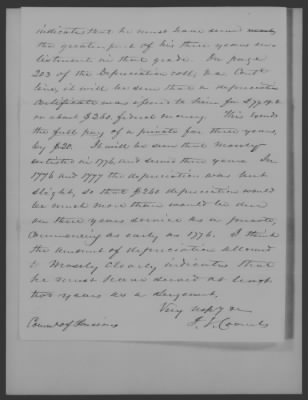 indicates that he must have served
the greater part of his three years en-
listment in that grade. On page
203 of the Depreciation roll, N.C. Cont
line, it will be seen that a depreciation
certificate was issued to him for
or about $260. federal money. This exceeds
the full pay of a private for three years,
by $20. It will be seen that Mosely
enlisted in 1776 and served three years. In
1776 and 1777 the depreciation was but
slight, so that $260 depreciation would
be much more than would be due
on three years service as a private,
commencing as early as 1776. I think
the amount of depreciation allowed
to Mosely clearly indicates that
he must have served at least
two years as a Sergeant.
Very resp'y &c
Comr of Pensions